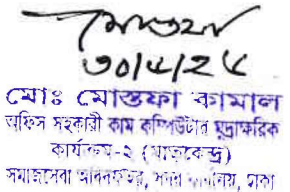 মোস্তফা
৩০/৪/২৫
মোঃ মোস্তফা কামাল
অফিস সহকারী কাম কম্পিউটার মুদ্রাক্ষরিক
কার্যক্রম-২ (মাতৃকেন্দ্র)
সমাজসেবা অধিদফতর, সদর কার্যালয়, ঢাকা